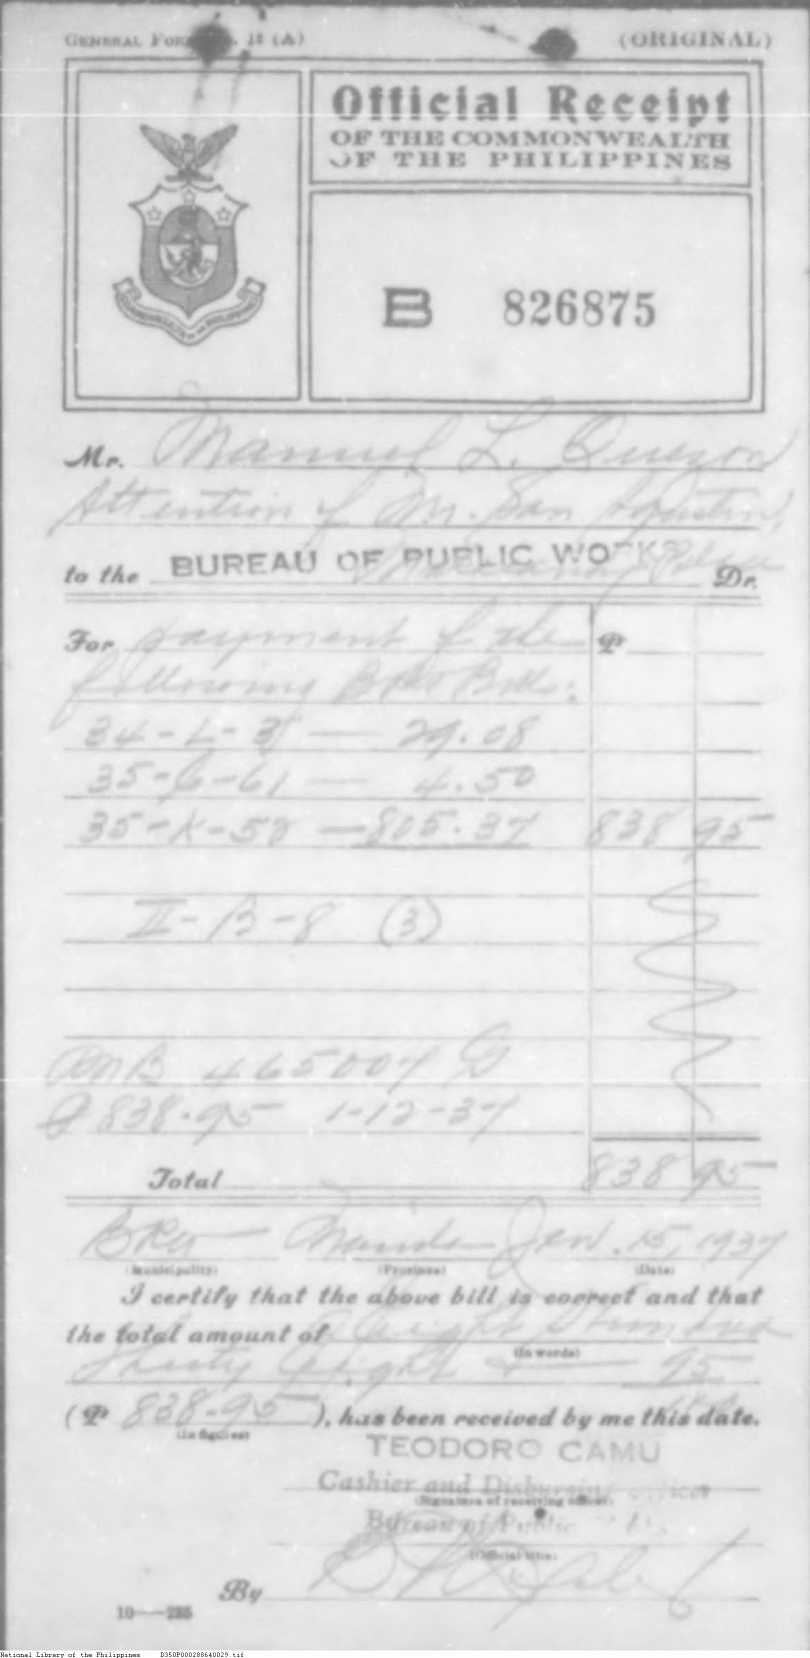 GENERAL FORM No. 13 (A) (ORIGINAL)
Official Receipt
OF THE COMMONWEALTH
OF THE PHILIPPINES
COMMONWEALTH OF THE PHILIPPINES
B 826875
Mr. Manuel L. Quezon
Attention of Mr. San Agustin,
to the BUREAU OF PUBLIC WORKS Dr.
For payment of the ₱
following BPW Bills:
34-L-3 — 29.08
35-G-61 — 4.50
35-K-58 — 805.37 838 95
II-B-8 (3)
PNB 465007 G
₱ 838.95 1-12-37
Total 838 95
BPW Manila Jan. 15, 1937
(Municipality) (Province) (Date)
I certify that the above bill is correct and that
the total amount of Eight Hundred
(In words)
Thirty Eight & 95
(₱ 838.95), has been received by me this date.
(In figures)
TEODORO CAMU
Cashier and Disbursing Officer
(Signature of receiving officer)
Bureau of Public Works
(Official title)
By
10——235
National Library of the Philippines D350P000288640029.tif